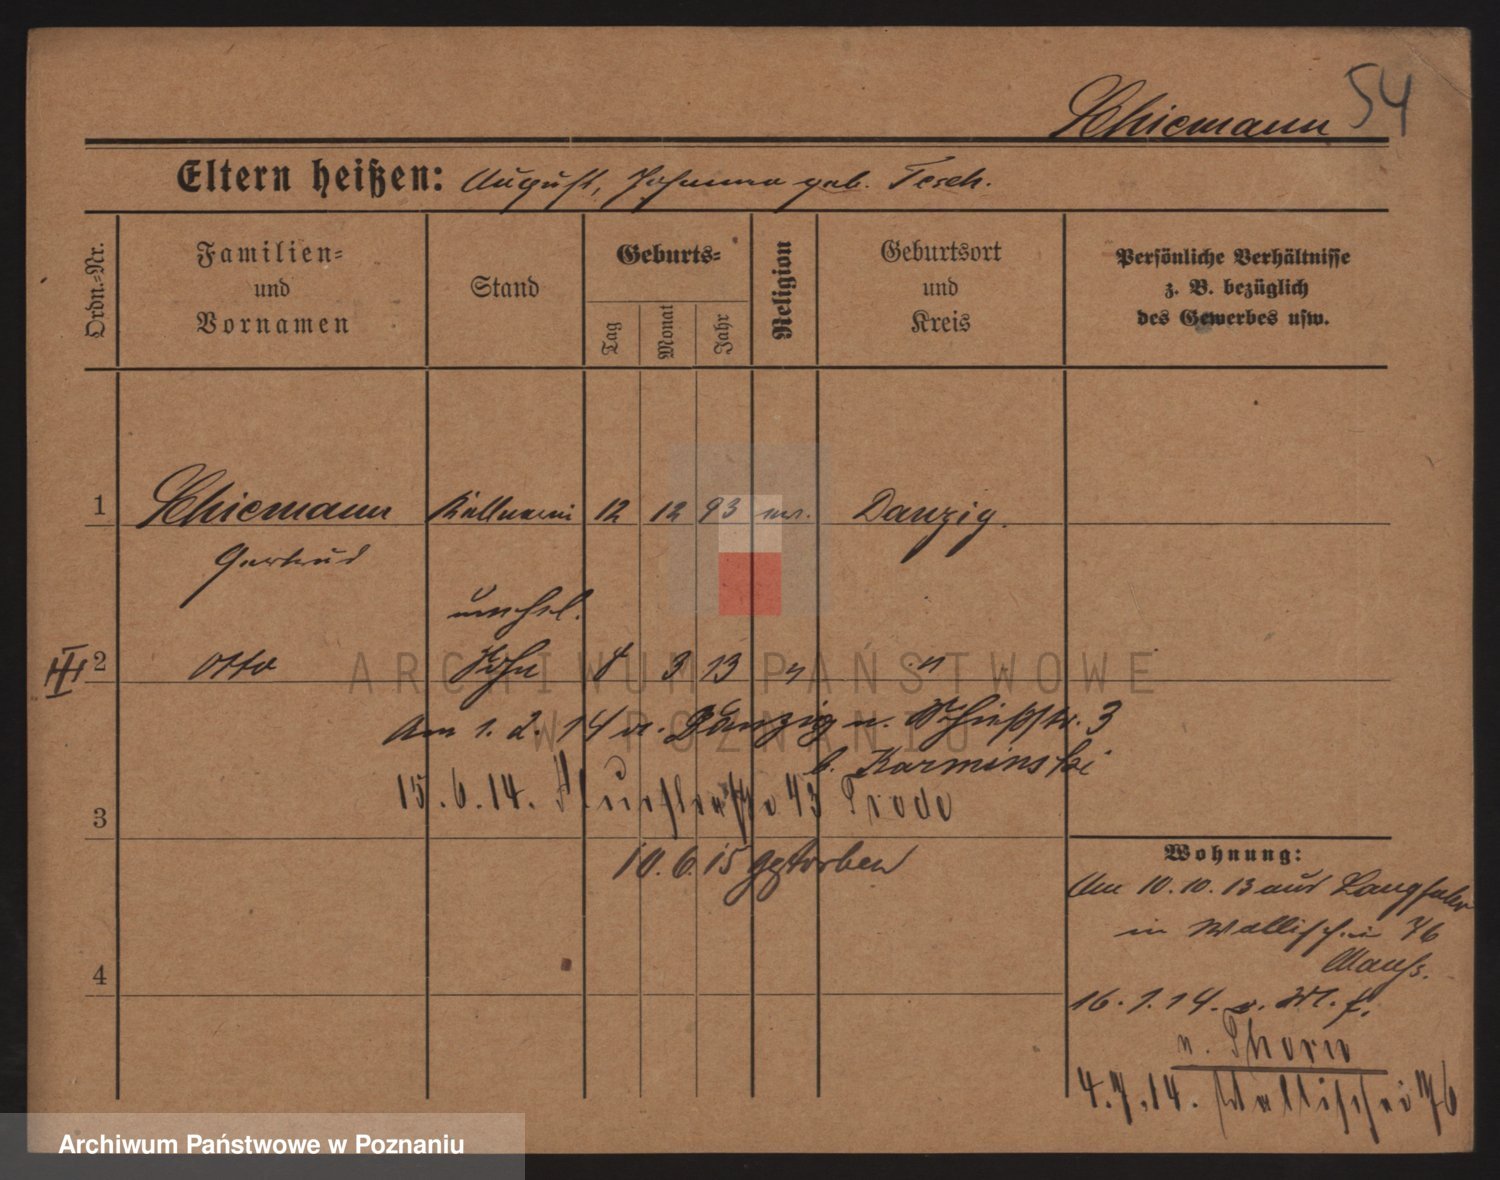 Schiemann 54
Eltern heißen: August, Johanna geb. Tesch.
Ordn.-Nr.
Familien-
und
Vornamen
Stand
Geburts-
Tag
Monat
Jahr
Religion
Geburtsort
und
Kreis
Persönliche Verhältnisse
z. B. bezüglich
des Gewerbes usw.
1 Schiemann Kellnerin 12 12 93 ev. Danzig.
Gertrud
unehel.
III 2 Otto Sohn 8 3 13 " "
Am 1. 2. 14 v. Danzig n. Schießstr. 3
b. Karminski
15.6.14. 43
3
10.6.15 gestorben
4
Wohnung:
Am 10.10.13 aus Langfuhr
in Wallischei 76
16.1.14.
n. Thorn
4.7.14. Wallischei 76
ARCHIWUM PAŃSTWOWE
W POZNANIU
Archiwum Państwowe w Poznaniu